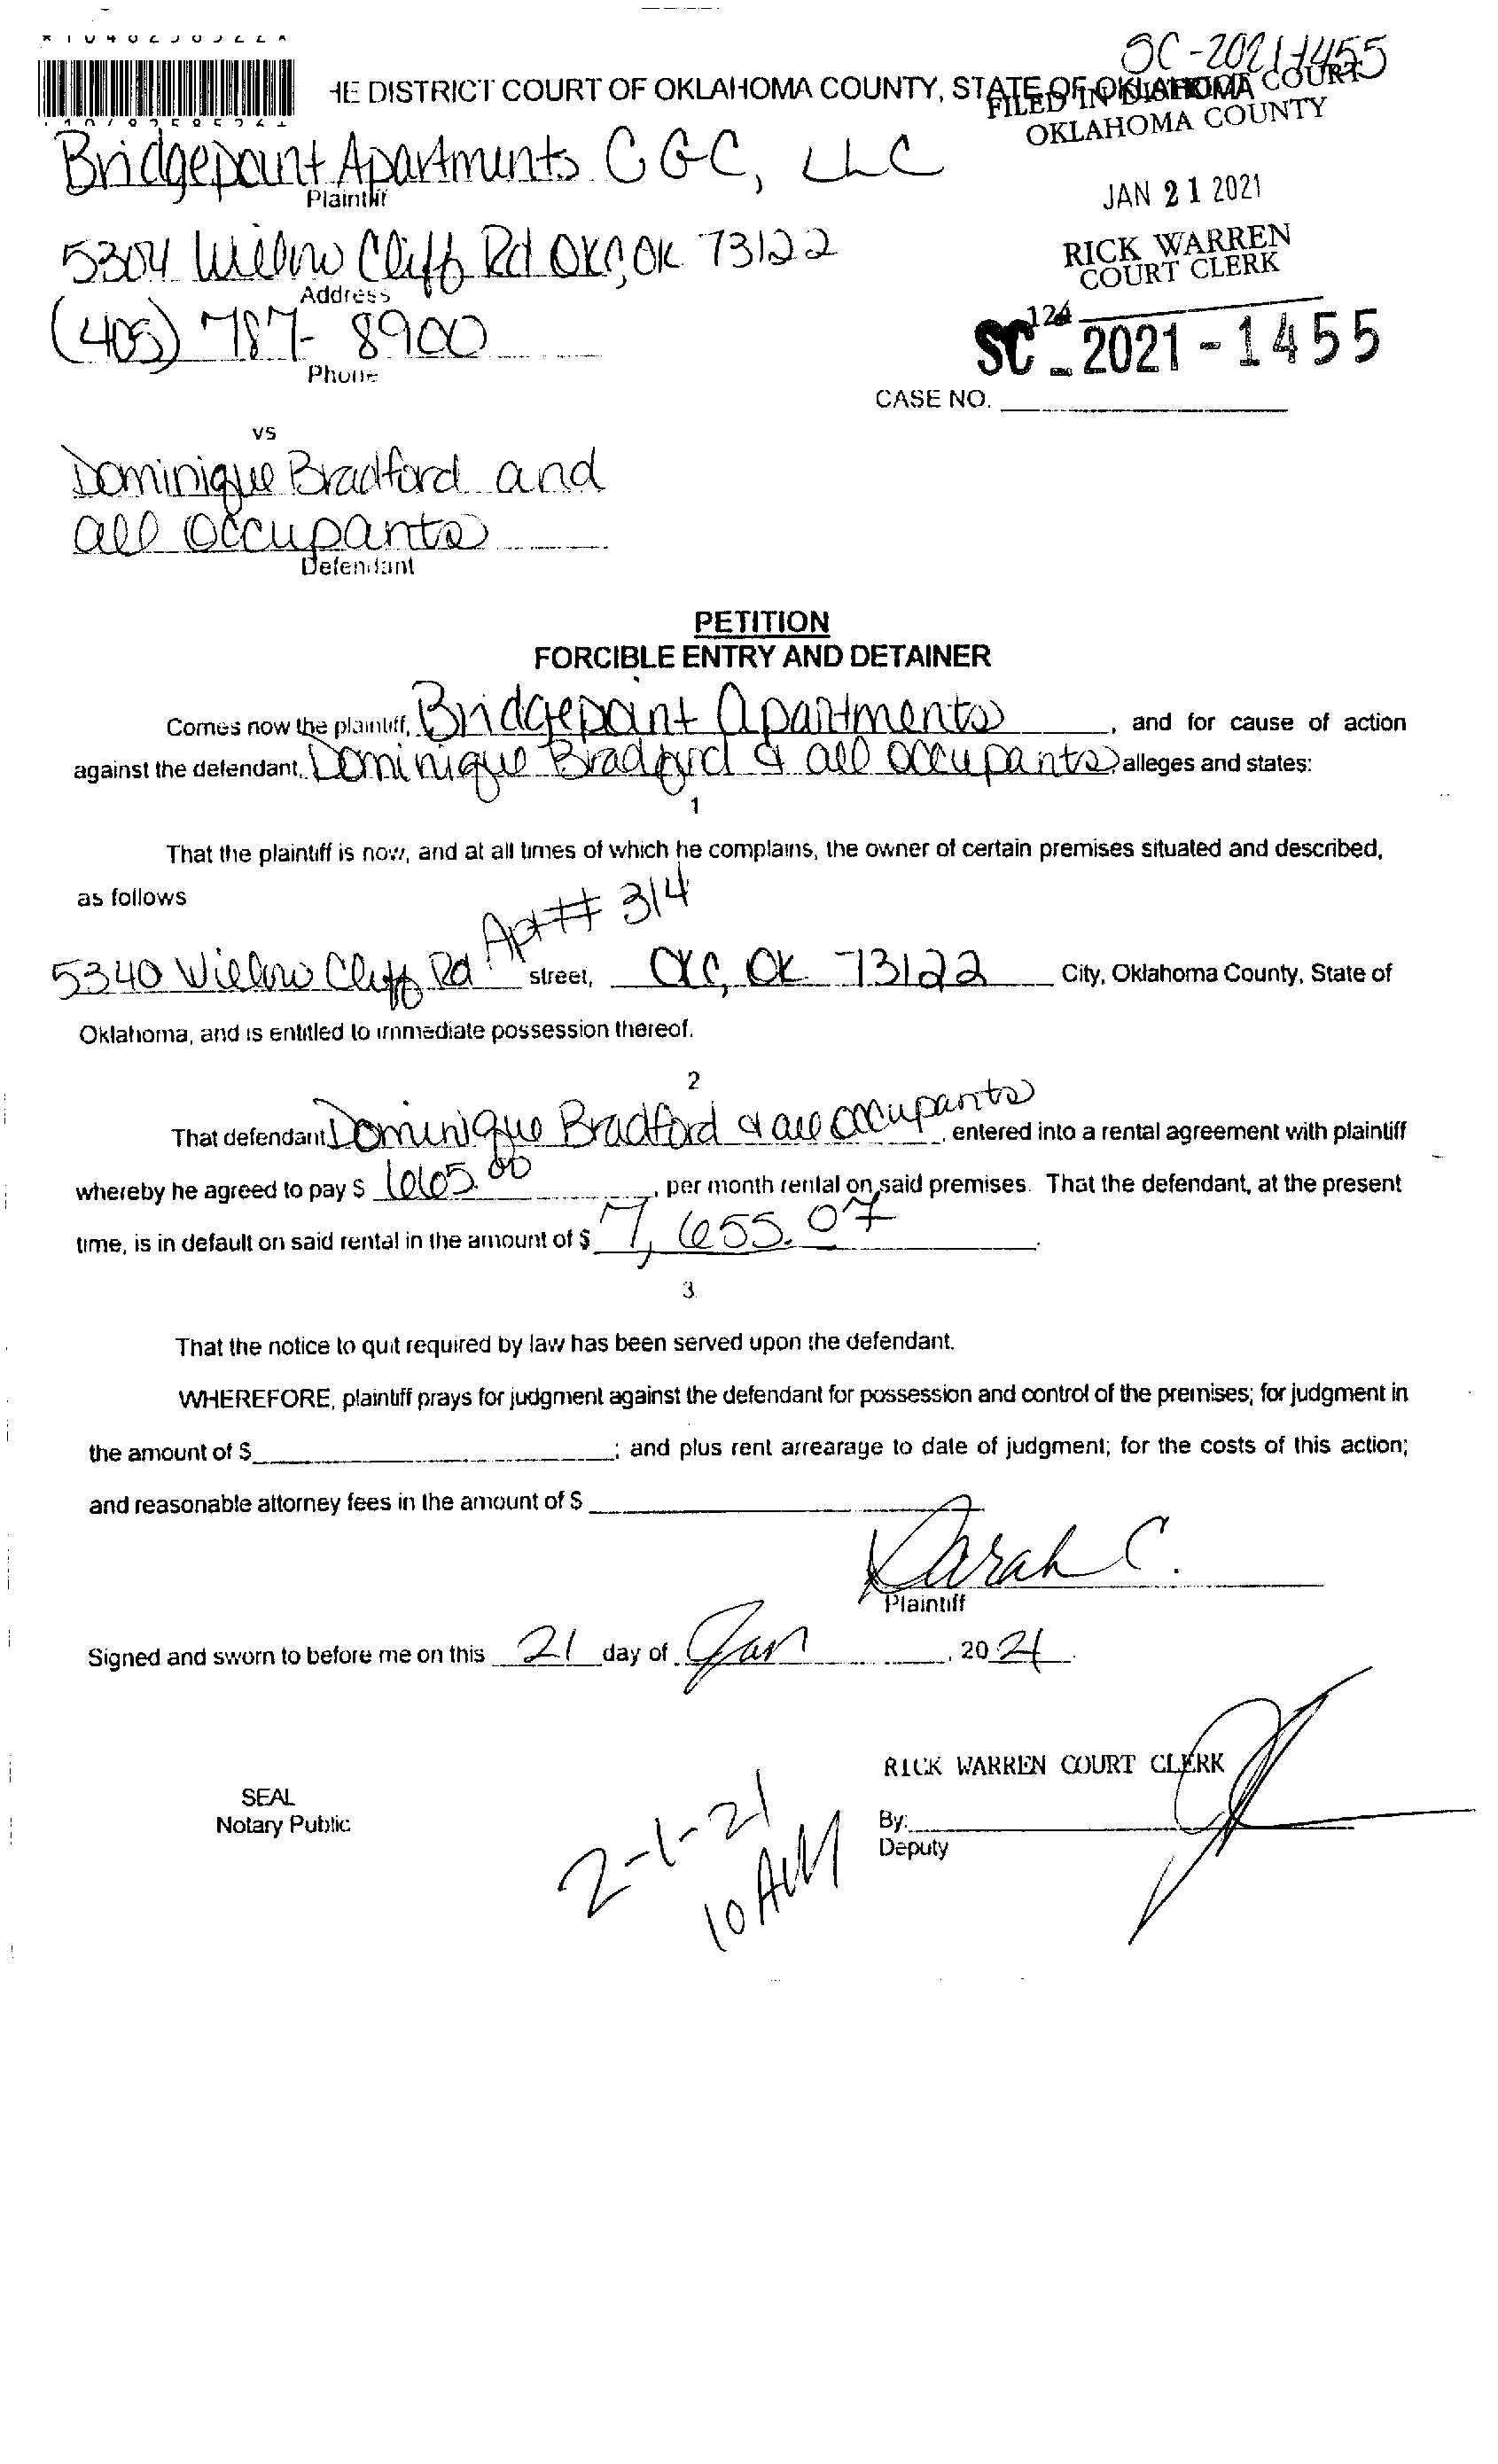 SC-2021-1455
HE DISTRICT COURT OF OKLAHOMA COUNTY, STATE OF OKLAHOMA
FILED IN DISTRICT COURT
OKLAHOMA COUNTY
Bridgepoint Apartments CGC, LLC
Plaintiff
JAN 21 2021
5304 Willow Cliff Rd OKC, OK 73122
Address
RICK WARREN
COURT CLERK
(405) 787-8900
Phone
124
SC-2021-1455
CASE NO.
vs
Dominique Bradford and
all occupants
Defendant
PETITION
FORCIBLE ENTRY AND DETAINER
Comes now the plaintiff, Bridgepoint Apartments, and for cause of action
against the defendant, Dominique Bradford & all occupants, alleges and states:
1
That the plaintiff is now, and at all times of which he complains, the owner of certain premises situated and described,
as follows
5340 Willow Cliff Rd Apt# 314 street, OKC, OK 73122 City, Oklahoma County, State of
Oklahoma, and is entitled to immediate possession thereof.
2
That defendant Dominique Bradford & all occupants, entered into a rental agreement with plaintiff
whereby he agreed to pay $ 665.00, per month rental on said premises. That the defendant, at the present
time, is in default on said rental in the amount of $ 7,655.07.
3
That the notice to quit required by law has been served upon the defendant.
WHEREFORE, plaintiff prays for judgment against the defendant for possession and control of the premises; for judgment in
the amount of $; and plus rent arrearage to date of judgment; for the costs of this action;
and reasonable attorney fees in the amount of $
Sarah C.
Plaintiff
Signed and sworn to before me on this 21 day of Jan, 2021.
RICK WARREN COURT CLERK
SEAL
Notary Public
By:
Deputy
2-1-21
10 AM